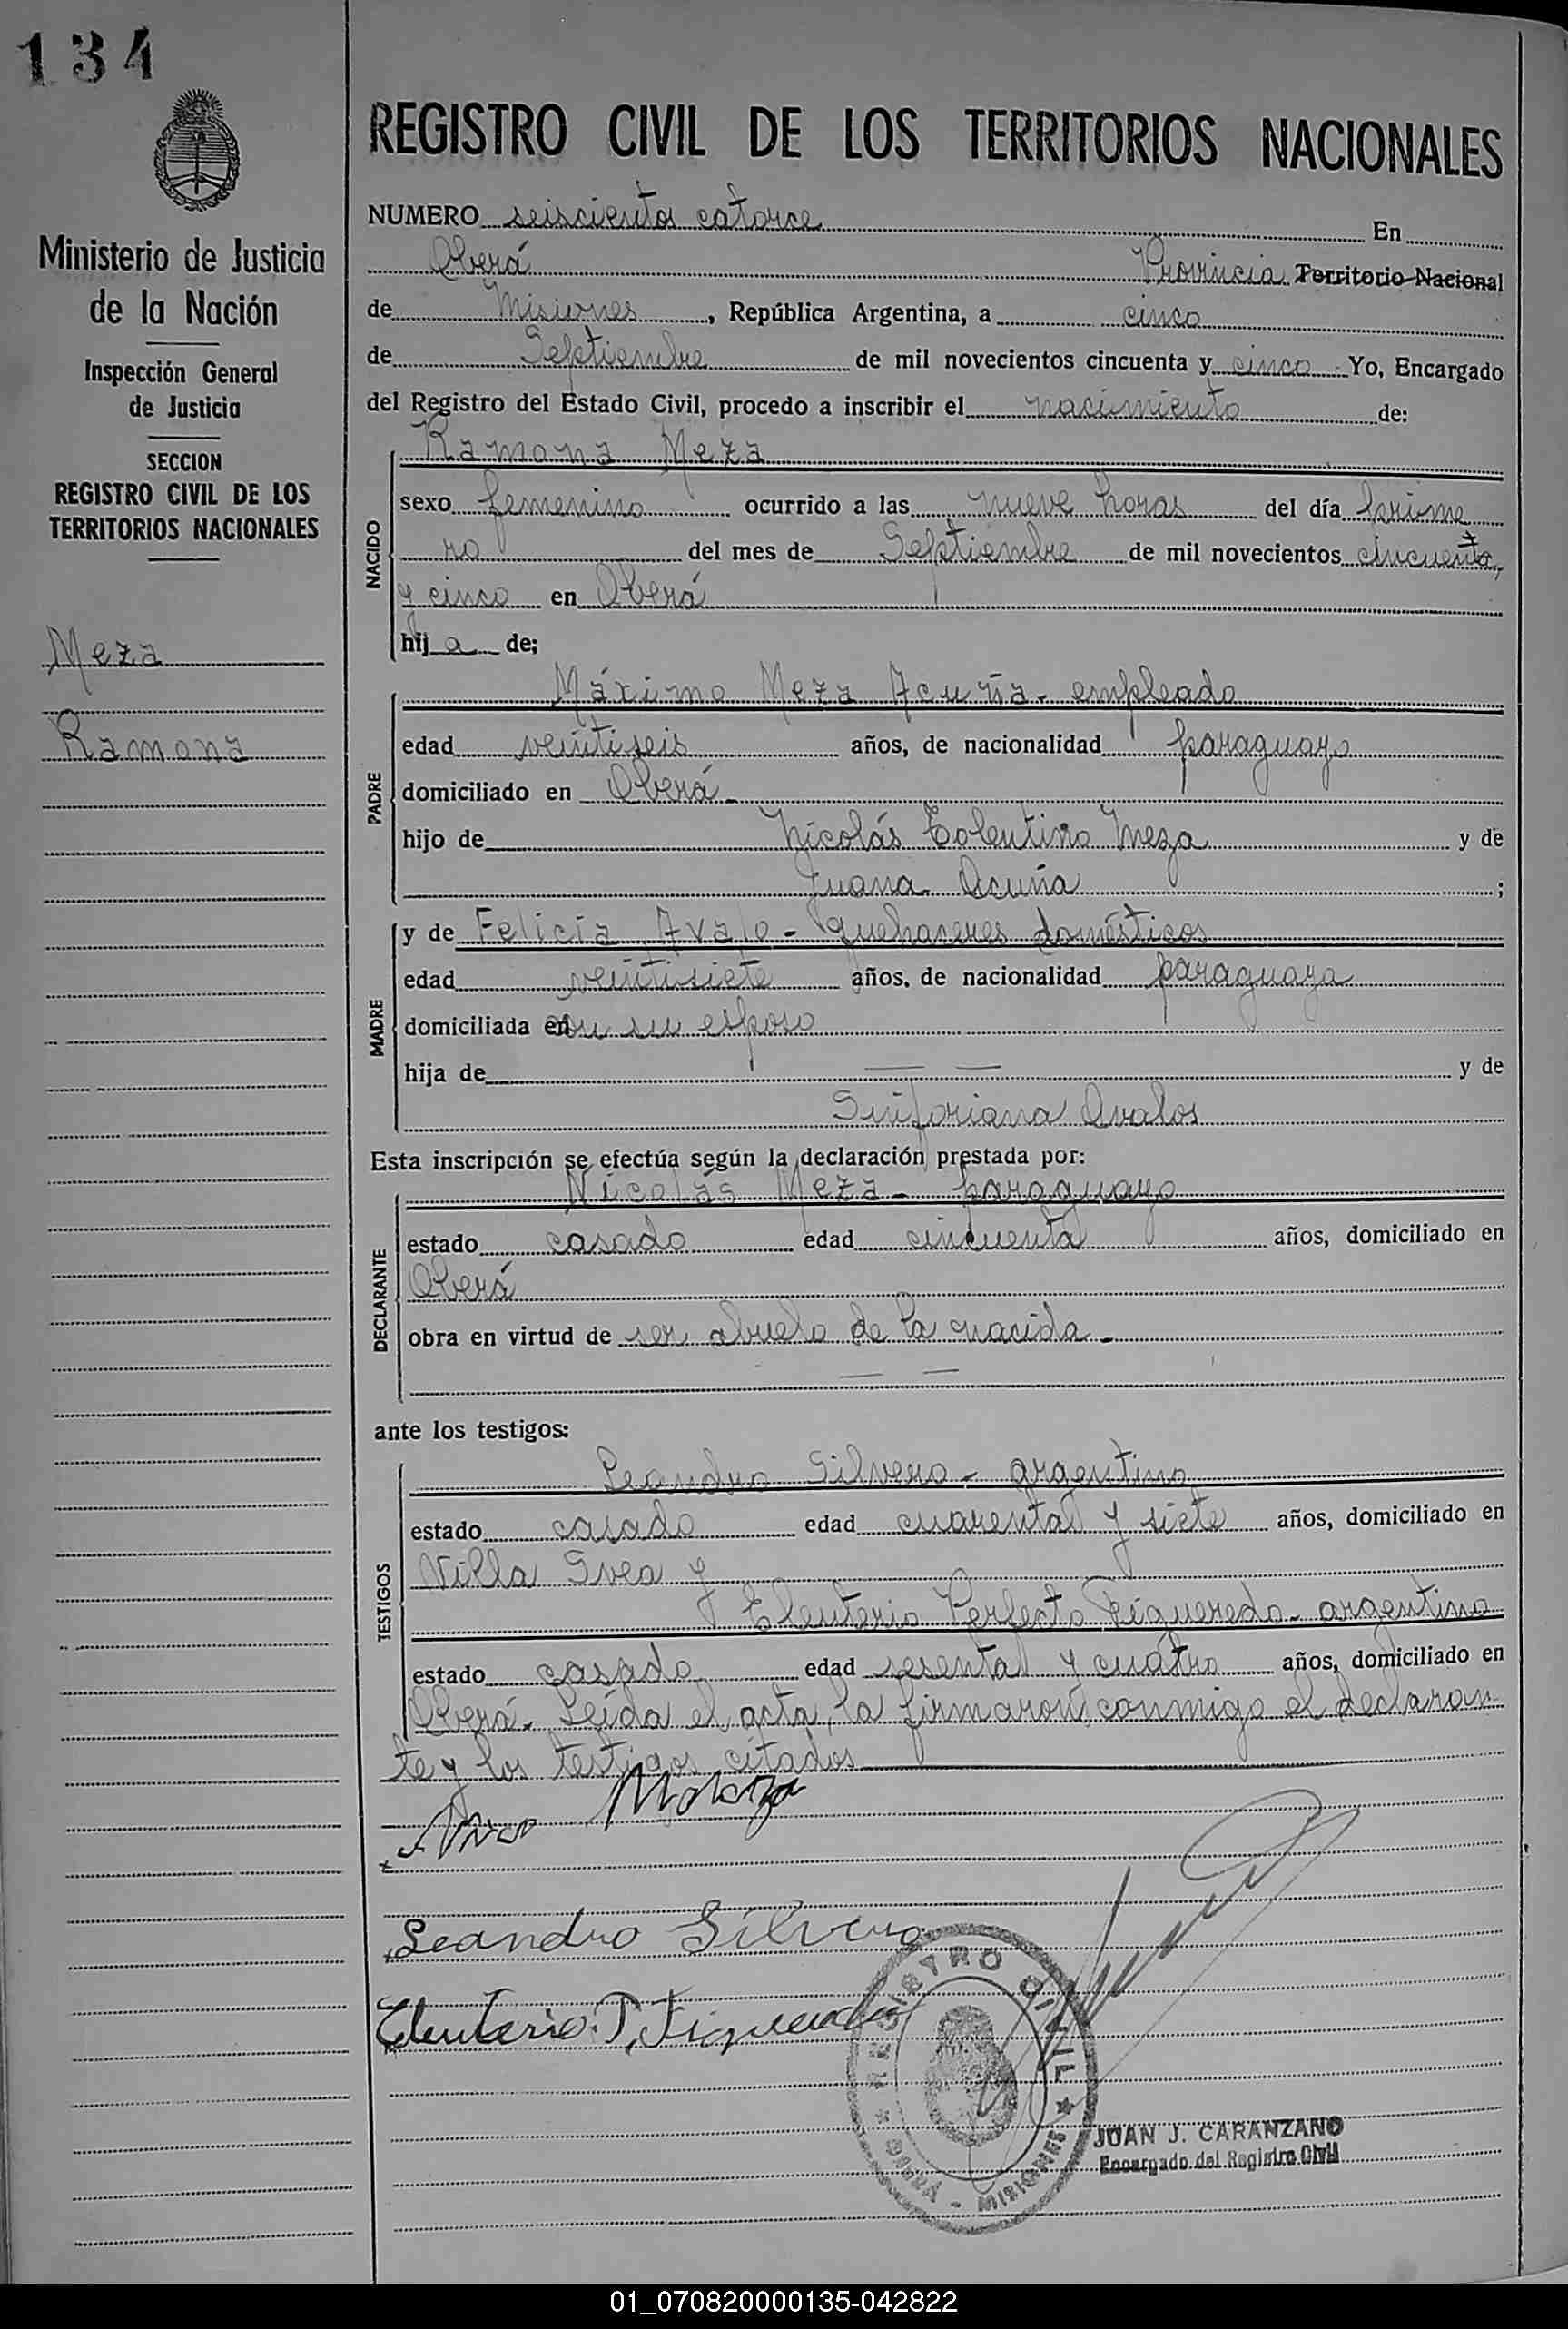 134
REGISTRO CIVIL DE LOS TERRITORIOS NACIONALES
Ministerio de Justicia
de la Nación
Inspección General
de Justicia
SECCION
REGISTRO CIVIL DE LOS
TERRITORIOS NACIONALES
Meza
Ramona
NUMERO seiscientos catorce En
Oberá Provincia Territorio Nacional
de Misiones, República Argentina, a cinco
de Septiembre de mil novecientos cincuenta y cinco Yo, Encargado
del Registro del Estado Civil, procedo a inscribir el nacimiento de:
NACIDO
Ramona Meza
sexo femenino ocurrido a las nueve horas del día prime
ro del mes de Septiembre de mil novecientos cincuenta
y cinco en Oberá
hija de;
PADRE
Máximo Meza Acuña - empleado
edad veintiseis años, de nacionalidad paraguayo
domiciliado en Oberá -
hijo de Nicolás Tolentino Meza y de
Juana Acuña ;
MADRE
y de Felicia Avalo - quehaceres domésticos
edad veintisiete años, de nacionalidad paraguaya
domiciliada en con su esposo
hija de — — y de
Sinforiana Avalos
Esta inscripción se efectúa según la declaración prestada por:
DECLARANTE
Nicolás Meza - paraguayo
estado casado edad cincuenta años, domiciliado en
Oberá
obra en virtud de ser abuelo de la nacida -
— —
ante los testigos:
TESTIGOS
Leandro Silvero - argentino
estado casado edad cuarenta y siete años, domiciliado en
Villa Svea y
Eleuterio Perfecto Figueredo - argentino
estado casado edad sesenta y cuatro años, domiciliado en
Oberá. Leída el acta, la firmaron conmigo el declaran
te y los testigos citados
Leandro Silvero
Eleuterio P. Figueredo
REGISTRO CIVIL
OBERÁ - MISIONES
JUAN J. CARANZANO
Encargado del Registro Civil
01_070820000135-042822